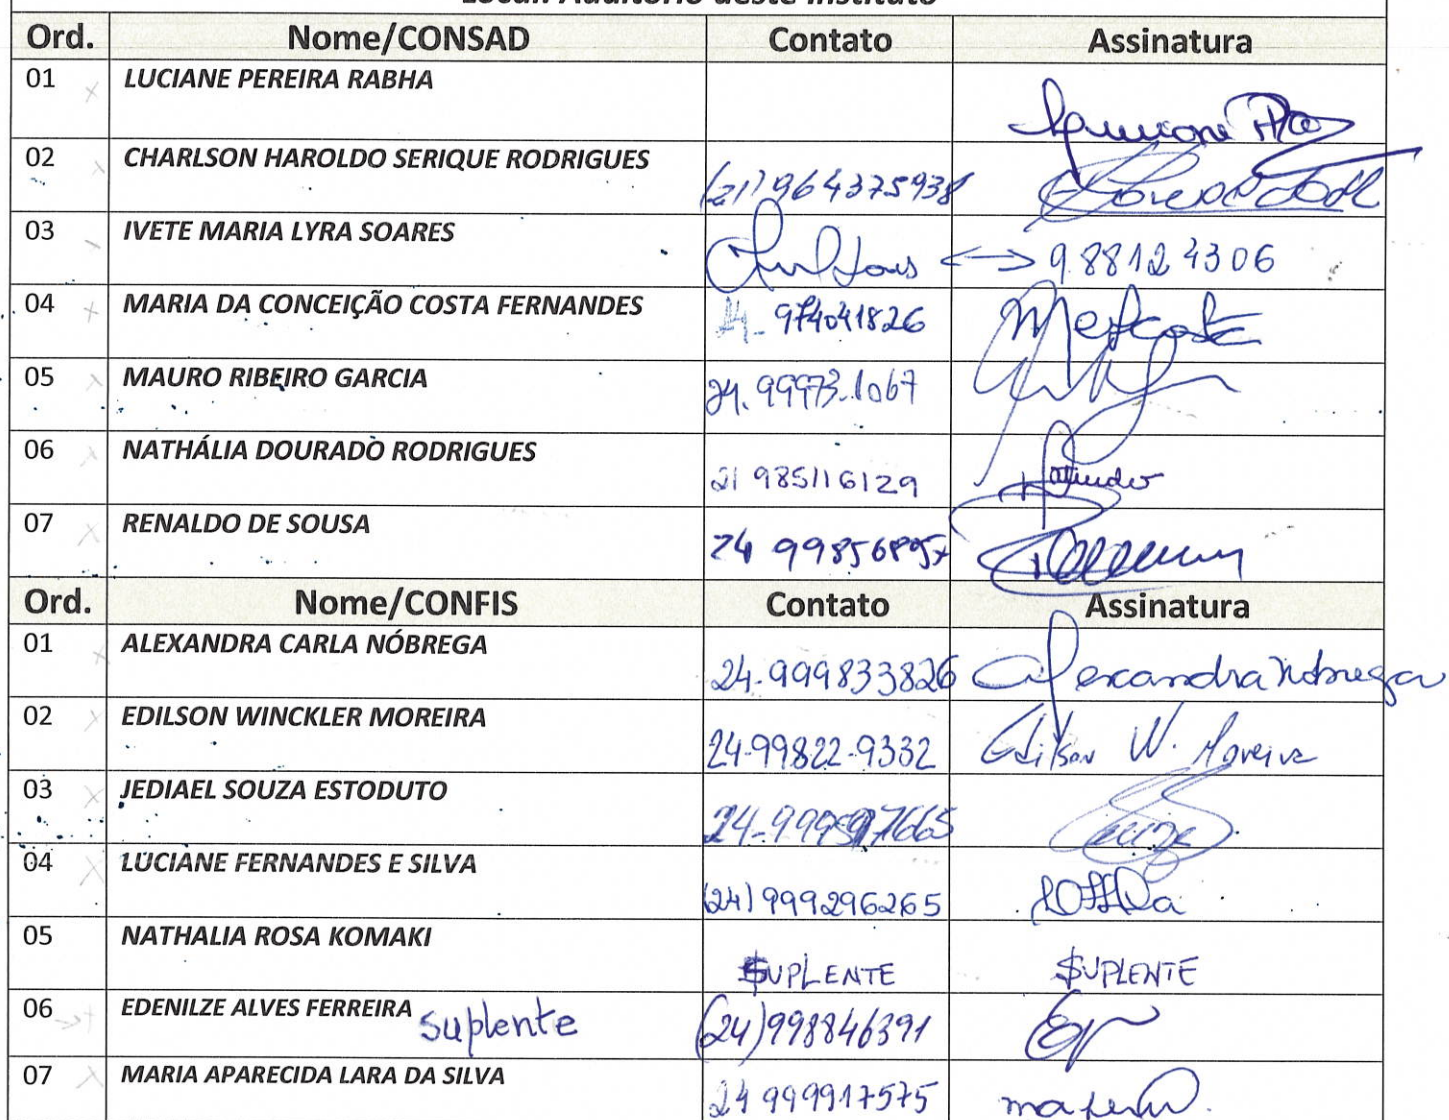 Local: Auditório deste Instituto
Ord. Nome/CONSAD Contato Assinatura
01 LUCIANE PEREIRA RABHA
02 CHARLSON HAROLDO SERIQUE RODRIGUES (21) 964375938
03 IVETE MARIA LYRA SOARES 988124306
04 MARIA DA CONCEIÇÃO COSTA FERNANDES 974041826
05 MAURO RIBEIRO GARCIA 24.99973-1067
06 NATHÁLIA DOURADO RODRIGUES 21 985116129
07 RENALDO DE SOUSA 24 998568957
Ord. Nome/CONFIS Contato Assinatura
01 ALEXANDRA CARLA NÓBREGA 24-999833826 Alexandra Nobrega
02 EDILSON WINCKLER MOREIRA 24-99822-9332 Edilson W. Moreira
03 JEDIAEL SOUZA ESTODUTO
04 LUCIANE FERNANDES E SILVA (24) 999296265
05 NATHALIA ROSA KOMAKI SUPLENTE SUPLENTE
06 EDENILZE ALVES FERREIRA suplente (24)998846391
07 MARIA APARECIDA LARA DA SILVA 24 999917575